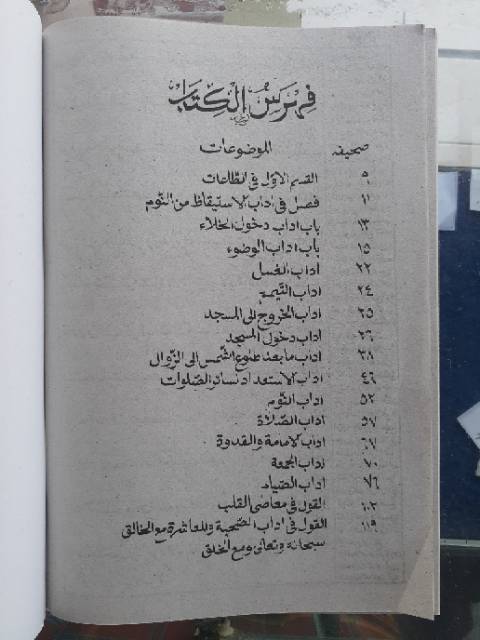 فهرس الكتاب
صحيفه الموضوعات
٩ القسم الاول في الطاعات
١١ فصل في اداب الاستيقاظ من النوم
١٣ باب اداب دخول الخلاء
١٥ باب اداب الوضوء
٢٢ اداب الغسل
٢٤ اداب التيمم
٢٥ اداب الخروج الى المسجد
٢٦ اداب دخول المسجد
٣٨ اداب ما بعد طلوع الشمس الى الزوال
٤٦ اداب الاستعداد لسائر الصلوات
٥٢ اداب النوم
٥٧ اداب الصلاة
٦٧ اداب الامامة والقدوة
٧٠ اداب الجمعة
٧٦ اداب الصيام
القول في معاصي القلب
١١٩ القول في اداب الصحبة والمعاشرة مع الخالق
سبحانه وتعالى ومع الخلق